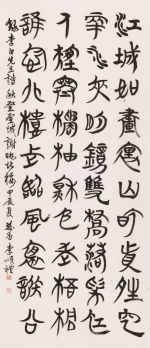 江城如畫裏山晚望晴空
兩水夾明鏡雙橋落彩虹
人煙寒橘柚秋色老梧桐
誰念北樓上臨風懷謝公
錄李白先生詩秋登宣城謝朓北樓甲辰夏